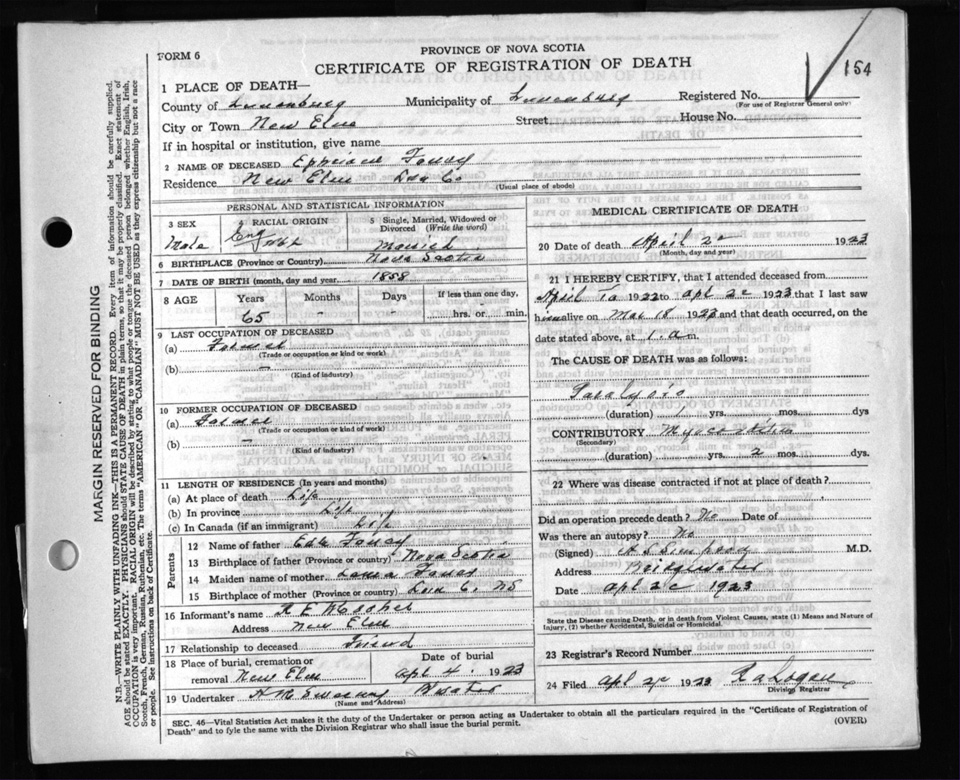 FORM 6
PROVINCE OF NOVA SCOTIA
CERTIFICATE OF REGISTRATION OF DEATH
154
1 PLACE OF DEATH—
County of Lunenburg Municipality of Lunenburg Registered No.
(For use of Registrar General only)
City or Town New Elm Street House No.
If in hospital or institution, give name
2 NAME OF DECEASED
Residence New Elm Lun Co
(Usual place of abode)
PERSONAL AND STATISTICAL INFORMATION
3 SEX Male
RACIAL ORIGIN Eng
5 Single, Married, Widowed or Divorced (Write the word) Married
6 BIRTHPLACE (Province or Country) Nova Scotia
7 DATE OF BIRTH (month, day and year) 1858
8 AGE Years Months Days If less than one day,
65 - - hrs. or min.
9 LAST OCCUPATION OF DECEASED
(a) Farmer
(Trade or occupation or kind of work)
(b) —
(Kind of industry)
10 FORMER OCCUPATION OF DECEASED
(a) Farmer
(Trade or occupation or kind of work)
(b) —
(Kind of industry)
11 LENGTH OF RESIDENCE (In years and months)
(a) At place of death Life
(b) In province Life
(c) In Canada (if an immigrant) Life
Parents
12 Name of father
13 Birthplace of father (Province or country) Nova Scotia
14 Maiden name of mother
15 Birthplace of mother (Province or country) Lun Co. NS
16 Informant's name
Address New Elm
17 Relationship to deceased Friend
18 Place of burial, cremation or removal New Elm
Date of burial Apr 4 1923
19 Undertaker
(Name and Address)
MEDICAL CERTIFICATE OF DEATH
20 Date of death April 2 1923
(Month, day and year)
21 I HEREBY CERTIFY, that I attended deceased from
April 1922 to Apl 2 1923 that I last saw
him alive on Mar 18 1923 and that death occurred, on the
date stated above, at 1 a.m.
The CAUSE OF DEATH was as follows:
Paralysis
(duration) 1 yrs. mos. dys
CONTRIBUTORY
(Secondary)
(duration) yrs. 2 mos. dys.
22 Where was disease contracted if not at place of death?
Did an operation precede death? No Date of
Was there an autopsy? No
(Signed) M.D.
Address Bridgewater
Date Apl 2 1923
State the Disease causing Death, or in death from Violent Causes, state (1) Means and Nature of Injury, (2) whether Accidental, Suicidal or Homicidal.
23 Registrar's Record Number
24 Filed Apl 1923 R A Logan
Division Registrar
SEC. 46—Vital Statistics Act makes it the duty of the Undertaker or person acting as Undertaker to obtain all the particulars required in the "Certificate of Registration of
Death" and to fyle the same with the Division Registrar who shall issue the burial permit.
(OVER)
MARGIN RESERVED FOR BINDING
N.B.—WRITE PLAINLY WITH UNFADING INK—THIS IS A PERMANENT RECORD. Every item of information should be carefully supplied.
AGE should be stated EXACTLY. PHYSICIANS should STATE CAUSE OF DEATH in plain terms, so that it may be properly classified. Exact statement of
OCCUPATION is very important. RACIAL ORIGIN will be described by stating to what people or tongue the deceased person belonged whether English, Irish,
Scotch, French, German, Russian, Ruthenian, etc. The terms "AMERICAN" OR "CANADIAN" MUST NOT BE USED as they express citizenship but not a race
or people. See instructions on back of Certificate.